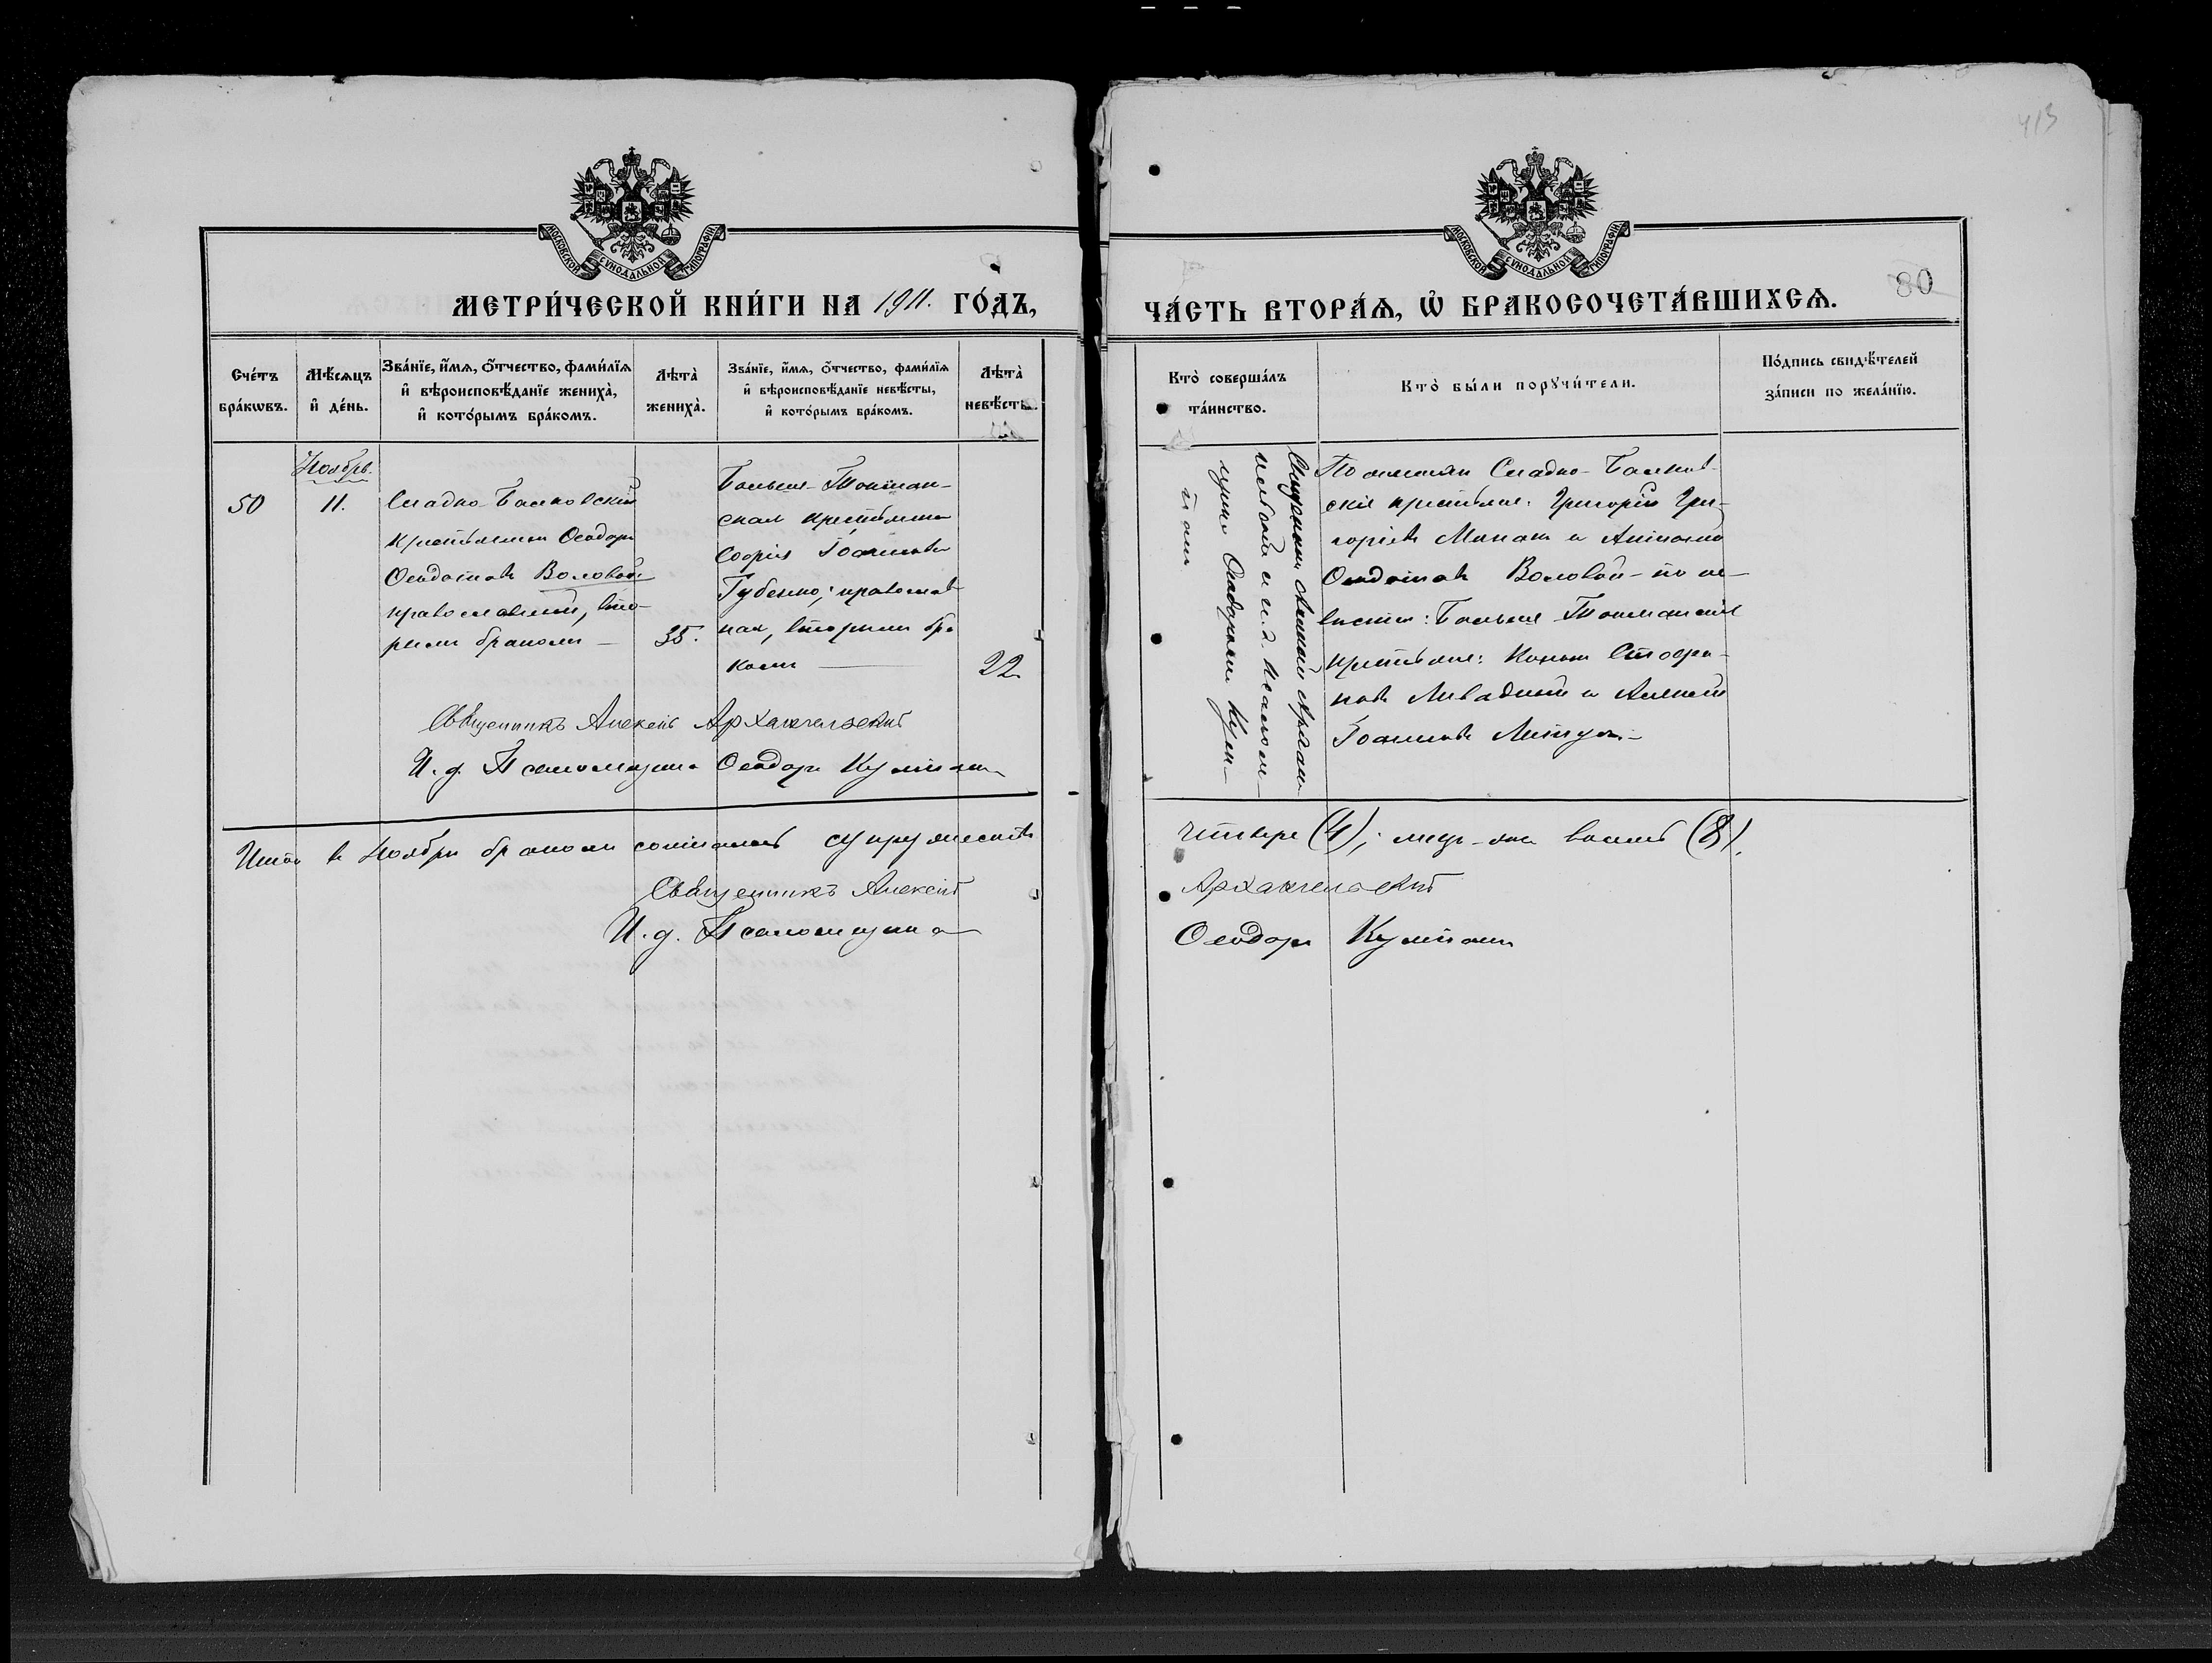 413
МОСКОВСКОЙ СУНОДАЛЬНОЙ ТИПОГРАФІИ
МЕТРИ́ЧЕСКОЙ КНИ́ГИ НА 1911. ГО́ДЪ,
Сче́тъ бра́кωвъ.
Мѣ́сѧцъ и҆ де́нь.
Зва́нїе, и҆́мѧ, ѻ҆́тчество, фами́лїѧ
и҆ вѣроисповѣ́данїе жениха̀,
и҆ кото́рымъ бра́комъ.
Лѣ́та̀ жениха̀.
Зва́нїе, и҆́мѧ, ѻ҆́тчество, фами́лїѧ
и҆ вѣроисповѣ́данїе невѣ́сты,
и҆ кото́рымъ бра́комъ.
Лѣ́та̀ невѣ́сты.
Ноябрь.
50
11.
Сладко-Балковскій
крестьянинъ Ѳеодоръ
Ѳеодотовъ Воловой
православный, вто-
рымъ бракомъ
35.
Больше-Токмак-
ская крестьянка
Софія Іоаннова
Губенко; православ
ная, вторымъ бра
комъ
22
Священникъ Алексій Архангельскій
И. д. Псаломщика Ѳеодоръ Культ
Итого въ Ноябрѣ бракомъ сочеталось супружествъ
Священникъ Алексій
И. д. Псаломщика
МОСКОВСКОЙ СУНОДАЛЬНОЙ ТИПОГРАФІИ
80
ЧА́СТЬ ВТОРА́Ѧ, Ѡ҆ БРАКОСОЧЕТА́ВШИХСѦ.
Кто̀ соверша́лъ
та́инство.
Кто̀ бы́ли порꙋчи́тели.
По́дпись свидѣ́телей
за́писи по жела́нїю.
Священникъ Алексій Архан-
гельскій и и. д. псаломщ-
щика Ѳеодоромъ
По женихѣ Сладко-Балков-
скіе крестьяне: Григорій Гри-
горіевъ и
Ѳеодотовъ Воловой - по не-
вѣстѣ: Больше-Токмакскіе
крестьяне: и Алексѣй
Іоанновъ
четыре (4); лицъ-же восемь (8).
Архангельскій
Ѳеодоръ